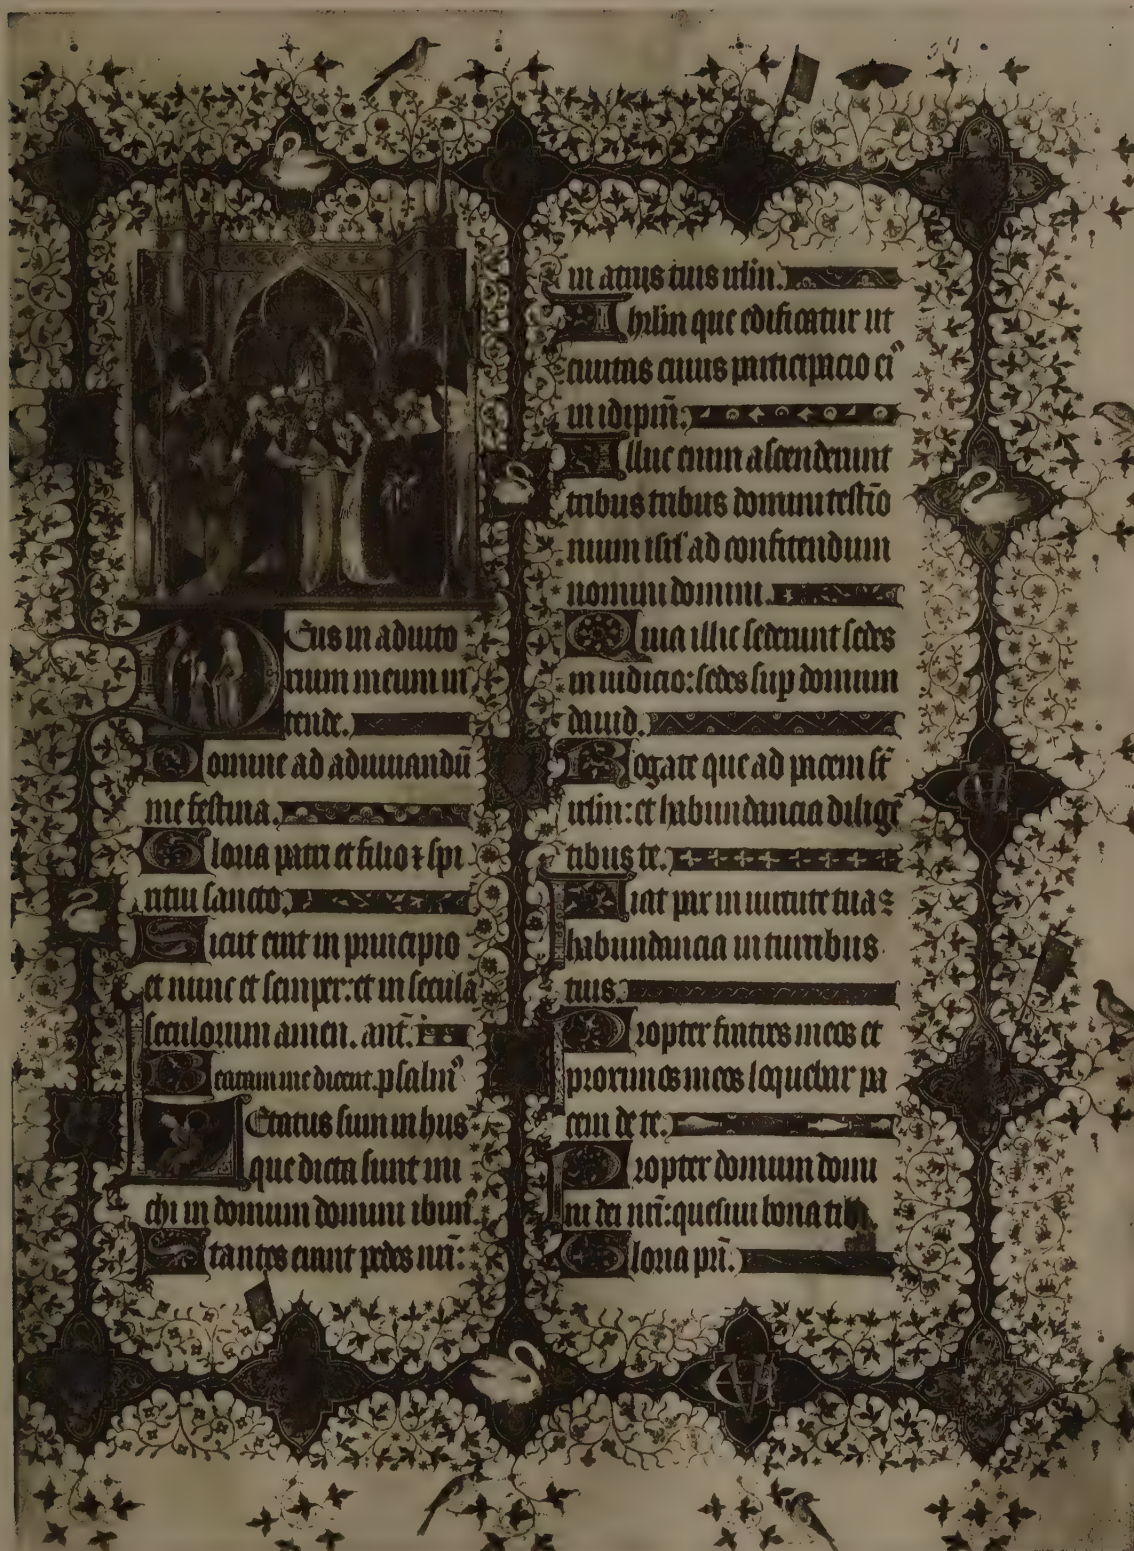 Deus in adiuto
rium meum in
tende.
Domine ad adiuuandū
me festina.
Gloria patri et filio ⁊ spi
ritui sancto.
Sicut erat in principio
et nunc et semper: et in secula
seculorum amen. ant̄.
Beatam me dicent. psalmꝰ
Letatus sum in hijs
que dicta sunt mi
chi in domum domini ibimꝰ.
Stantes erant pedes nr̄i:
in atrijs tuis irl̄m.
Ihrl̄m que edificatur ut
ciuitas cuius participacio eiꝰ
in idipm̄.
Illuc enim ascenderunt
tribus tribus domini testīo
nium isrl̄ ad confitendum
nomini domini.
Quia illic sederunt sedes
in iudicio: sedes sup domum
dauid.
Rogate que ad pacem sūt
irl̄m: et habundancia dilige
tibus te.
Fiat pax in uirtute tua ⁊
habundancia in turribus
tuis.
Propter fratres meos et
proximos meos loquebar pa
cem de te.
Propter domum domi
ni dei nr̄i: quesiui bona tibi.
Gloria pr̄i.